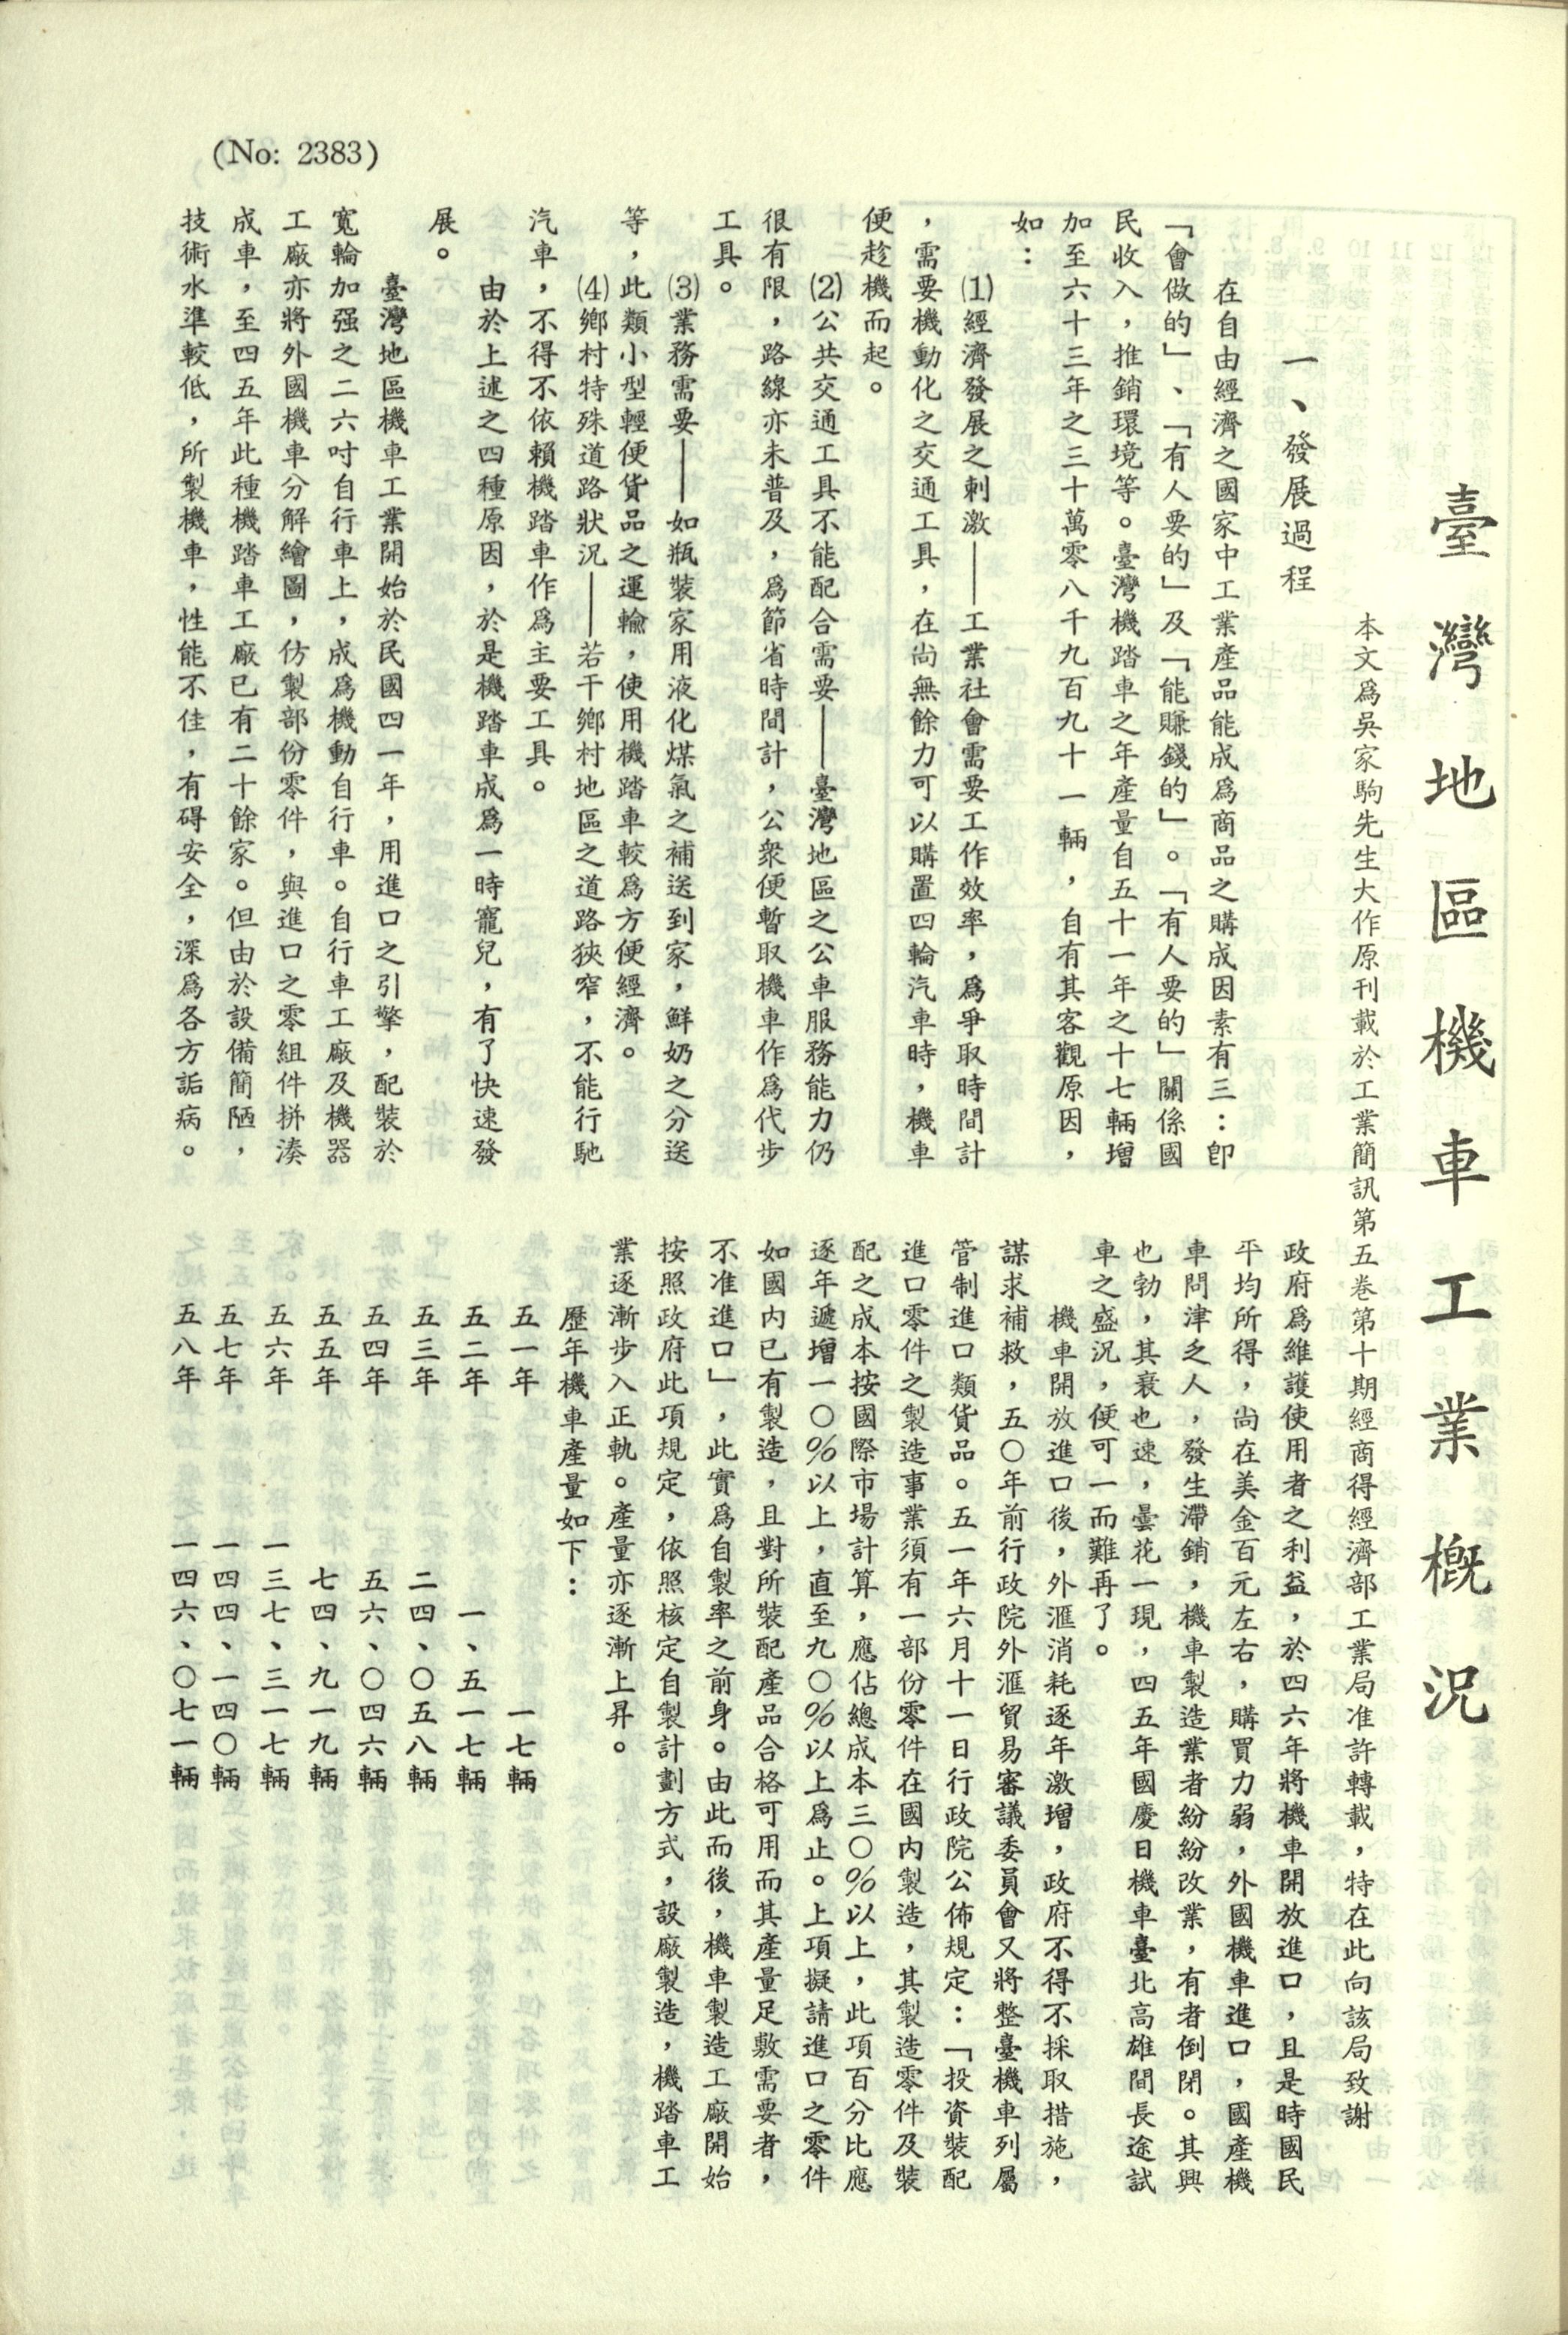 (No: 2383)
臺灣地區機車工業概況
本文爲吳家駒先生大作原刊載於工業簡訊第五卷第十期經商得經濟部工業局准許轉載，特在此向該局致謝
一、發展過程
在自由經濟之國家中工業產品能成爲商品之購成因素有三：卽
「會做的」、「有人要的」及「能賺錢的」。「有人要的」關係國
民收入，推銷環境等。臺灣機踏車之年產量自五十一年之十七輛增
加至六十三年之三十萬零八千九百九十一輛，自有其客觀原因，
如：
⑴經濟發展之刺激——工業社會需要工作效率，爲爭取時間計
，需要機動化之交通工具，在尚無餘力可以購置四輪汽車時，機車
便趁機而起。
⑵公共交通工具不能配合需要——臺灣地區之公車服務能力仍
很有限，路線亦未普及，爲節省時間計，公衆便暫取機車作爲代步
工具。
⑶業務需要——如瓶裝家用液化煤氣之補送到家，鮮奶之分送
等，此類小型輕便貨品之運輸，使用機踏車較爲方便經濟。
⑷鄉村特殊道路狀況——若干鄉村地區之道路狹窄，不能行馳
汽車，不得不依賴機踏車作爲主要工具。
由於上述之四種原因，於是機踏車成爲一時寵兒，有了快速發
展。
臺灣地區機車工業開始於民國四一年，用進口之引擎，配裝於
寬輪加强之二六吋自行車上，成爲機動自行車。自行車工廠及機器
工廠亦將外國機車分解繪圖，仿製部份零件，與進口之零組件拼湊
成車，至四五年此種機踏車工廠已有二十餘家。但由於設備簡陋，
技術水準較低，所製機車，性能不佳，有碍安全，深爲各方詬病。
政府爲維護使用者之利益，於四六年將機車開放進口，且是時國民
平均所得，尚在美金百元左右，購買力弱，外國機車進口，國產機
車問津乏人，發生滯銷，機車製造業者紛紛改業，有者倒閉。其興
也勃，其衰也速，曇花一現，四五年國慶日機車臺北高雄間長途試
車之盛況，便可一而難再了。
機車開放進口後，外滙消耗逐年激增，政府不得不採取措施，
謀求補救，五〇年前行政院外滙貿易審議委員會又將整臺機車列屬
管制進口類貨品。五一年六月十一日行政院公佈規定：「投資裝配
進口零件之製造事業須有一部份零件在國內製造，其製造零件及裝
配之成本按國際市場計算，應佔總成本三〇％以上，此項百分比應
逐年遞增一〇％以上，直至九〇％以上爲止。上項擬請進口之零件
如國內已有製造，且對所裝配產品合格可用而其產量足敷需要者，
不准進口」，此實爲自製率之前身。由此而後，機車製造工廠開始
按照政府此項規定，依照核定自製計劃方式，設廠製造，機踏車工
業逐漸步入正軌。產量亦逐漸上昇。
歷年機車產量如下：
五一年　一七輛
五二年　一、五一七輛
五三年　二四、〇五八輛
五四年　五六、〇四六輛
五五年　七四、九一九輛
五六年　一三七、三一七輛
五七年　一四四、一四〇輛
五八年　一四六、〇七一輛